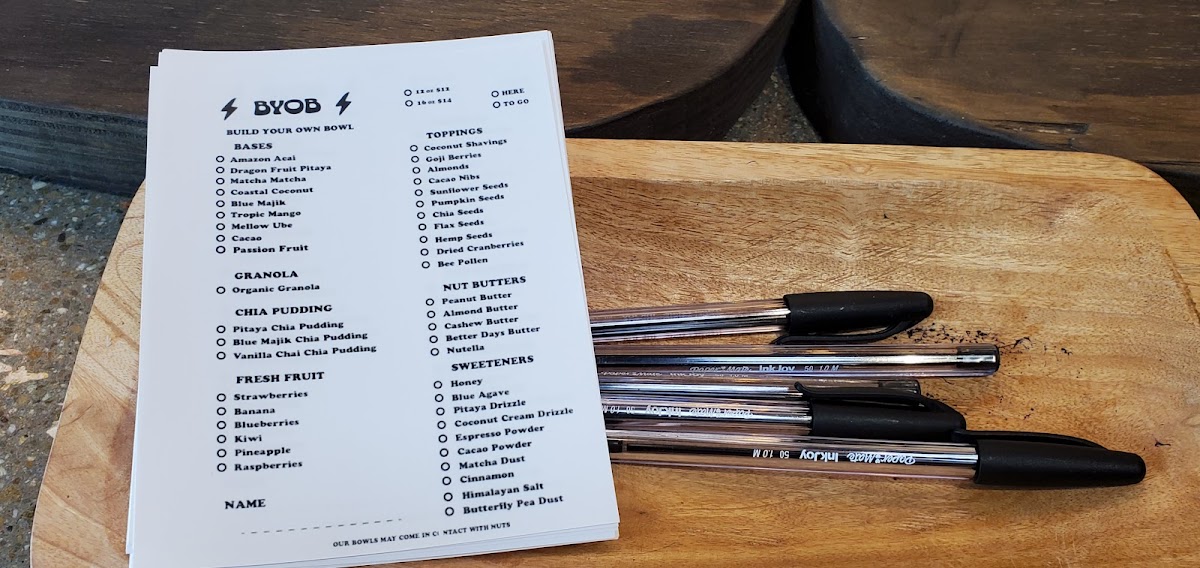 BYOB
BUILD YOUR OWN BOWL
12 oz $12
16 oz $14
HERE
TO GO
BASES
Amazon Acai
Dragon Fruit Pitaya
Matcha Matcha
Coastal Coconut
Blue Majik
Tropic Mango
Mellow Ube
Cacao
Passion Fruit
GRANOLA
Organic Granola
CHIA PUDDING
Pitaya Chia Pudding
Blue Majik Chia Pudding
Vanilla Chai Chia Pudding
FRESH FRUIT
Strawberries
Banana
Blueberries
Kiwi
Pineapple
Raspberries
NAME
TOPPINGS
Coconut Shavings
Goji Berries
Almonds
Cacao Nibs
Sunflower Seeds
Pumpkin Seeds
Chia Seeds
Flax Seeds
Hemp Seeds
Dried Cranberries
Bee Pollen
NUT BUTTERS
Peanut Butter
Almond Butter
Cashew Butter
Better Days Butter
Nutella
SWEETENERS
Honey
Blue Agave
Pitaya Drizzle
Coconut Cream Drizzle
Espresso Powder
Cacao Powder
Matcha Dust
Cinnamon
Himalayan Salt
Butterfly Pea Dust
OUR BOWLS MAY COME IN CONTACT WITH NUTS
Paper Mate InkJoy 50 1.0 M
Paper Mate InkJoy 50 1.0 M
Paper Mate InkJoy 50 1.0 M